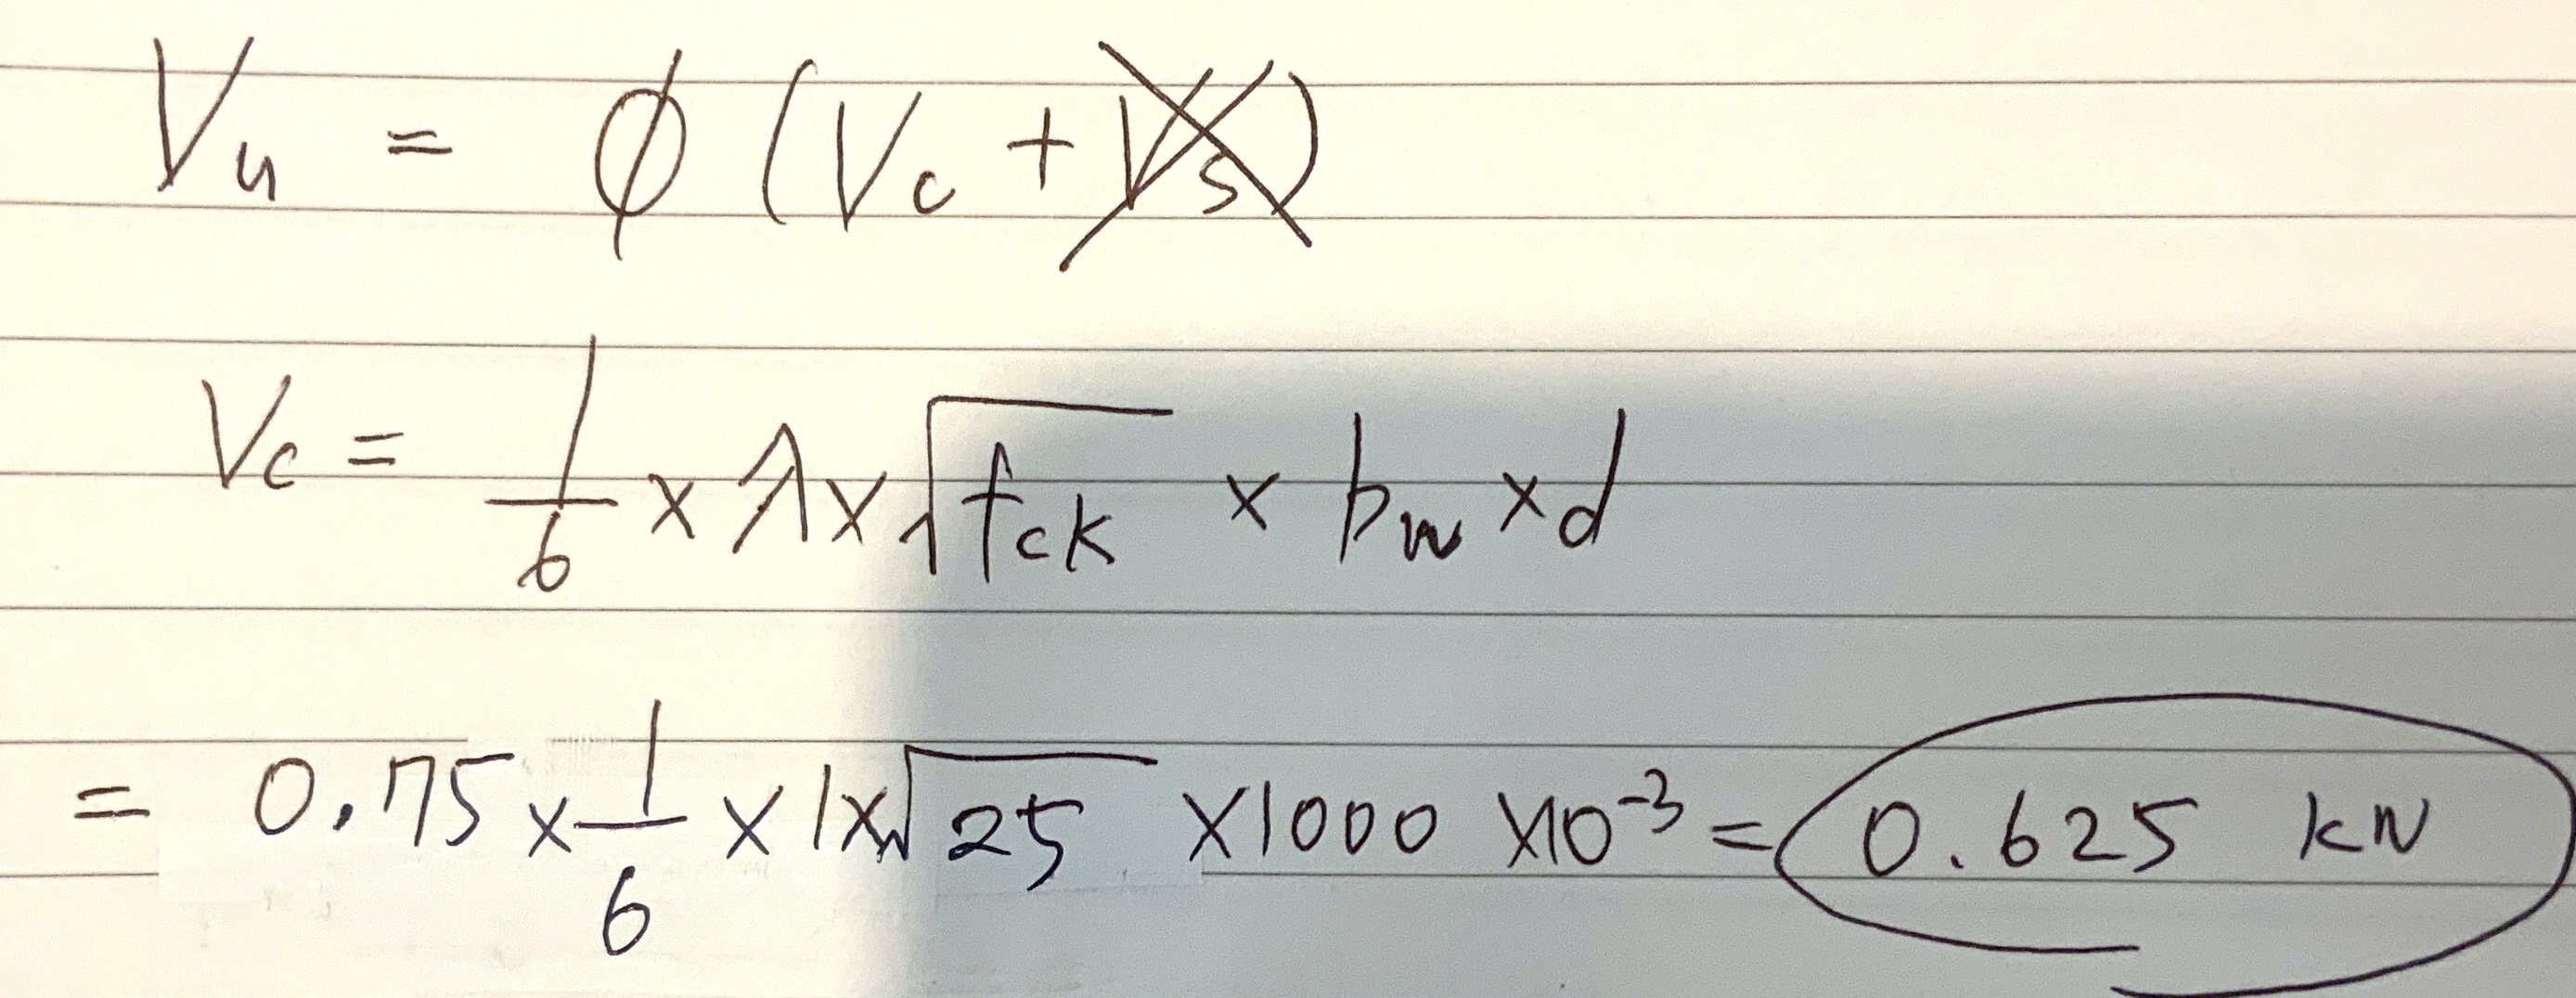 Vu = ϕ (Vc + Vs)
Vc = 1/6 × λ × √fck × bw × d
= 0.75 × 1/6 × 1 × √25 × 1000 × 10⁻³ = 0.625 kN